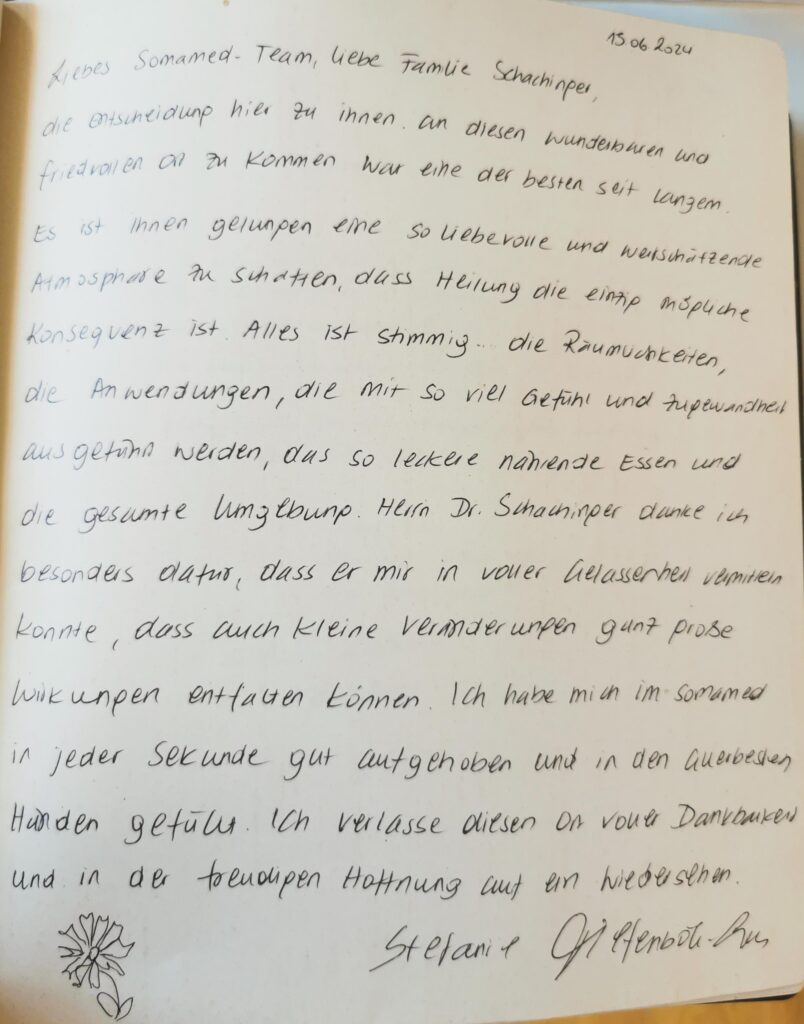 15.06.2024
Liebes Somamed-Team, liebe Familie Schachinger,
die Entscheidung hier zu ihnen, an diesen wunderbaren und
friedvollen Ort zu kommen war eine der besten seit langem.
Es ist Ihnen gelungen eine so liebevolle und wertschätzende
Atmosphäre zu schaffen, dass Heilung die einzig mögliche
Konsequenz ist. Alles ist stimmig... die Räumlichkeiten,
die Anwendungen, die mit so viel Gefühl und Zugewandheit
ausgeführt werden, das so leckere nährende Essen und
die gesamte Umgebung. Herrn Dr. Schachinger danke ich
besonders dafür, dass er mir in voller Gelassenheit vermitteln
konnte, dass auch kleine Veränderungen ganz große
Wirkungen entfalten können. Ich habe mich im somamed
in jeder Sekunde gut aufgehoben und in den allerbesten
Händen gefühlt. Ich verlasse diesen Ort voller Dankbarkeit
und in der freudigen Hoffnung auf ein Wiedersehen.
Stefanie